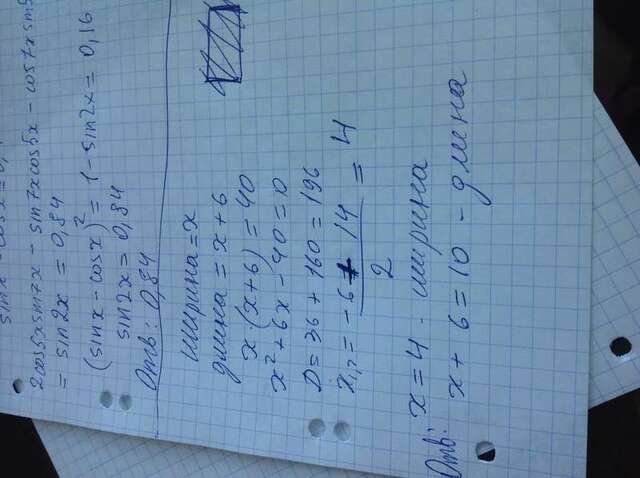 sinx - cosx = 0,
2cos5x sin7x - sin7x cos5x - cos7x sin5
= sin2x = 0,84
(sinx - cosx)² = 1 - sin2x = 0,16
sin2x = 0,84
Отв: 0,84
ширина = x
длина = x + 6
x(x+6) = 40
x² + 6x - 40 = 0
D = 36 + 160 = 196
x₁,₂ = (-6 + 14)/2 = 4
Отв: x = 4 - ширина
x + 6 = 10 - длина